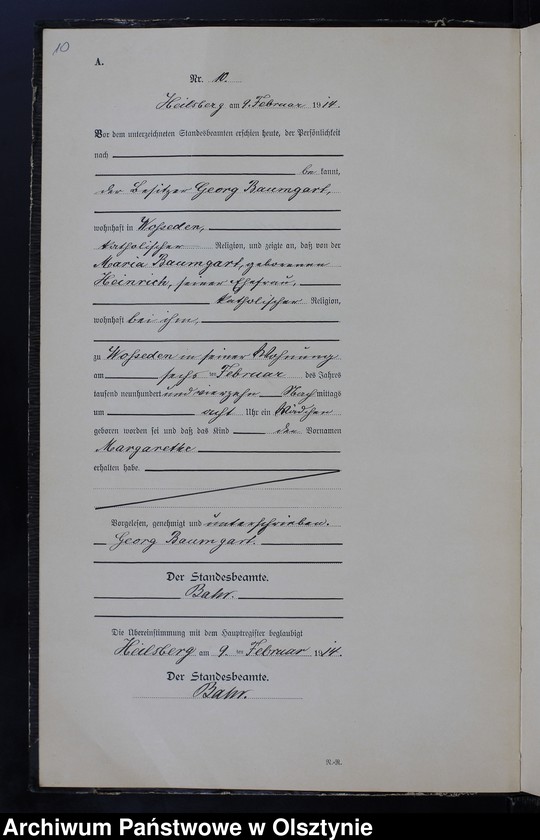 10
A.
Nr. 10.
Heilsberg am 9. Februar 1914.
Vor dem unterzeichneten Standesbeamten erschien heute, der Persönlichkeit
nach
be kannt,
der Besitzer Georg Baumgart,
wohnhaft in Wosseden,
katholischer Religion, und zeigte an, daß von der
Maria Baumgart, geborenen
Heinrich, seiner Ehefrau,
katholischer Religion,
wohnhaft bei ihm,
zu Wosseden in seiner Wohnung
am sechs ten Februar des Jahres
tausend neunhundert und vierzehn Nach mittags
um acht Uhr ein Mädchen
geboren worden sei und daß das Kind den Vornamen
Margarethe
erhalten habe.
Vorgelesen, genehmigt und unterschrieben.
Georg Baumgart.
Der Standesbeamte.
Bahr.
Die Übereinstimmung mit dem Hauptregister beglaubigt
Heilsberg am 9. ten Februar 1914.
Der Standesbeamte.
Bahr.
R.-R.
Archiwum Państwowe w Olsztynie